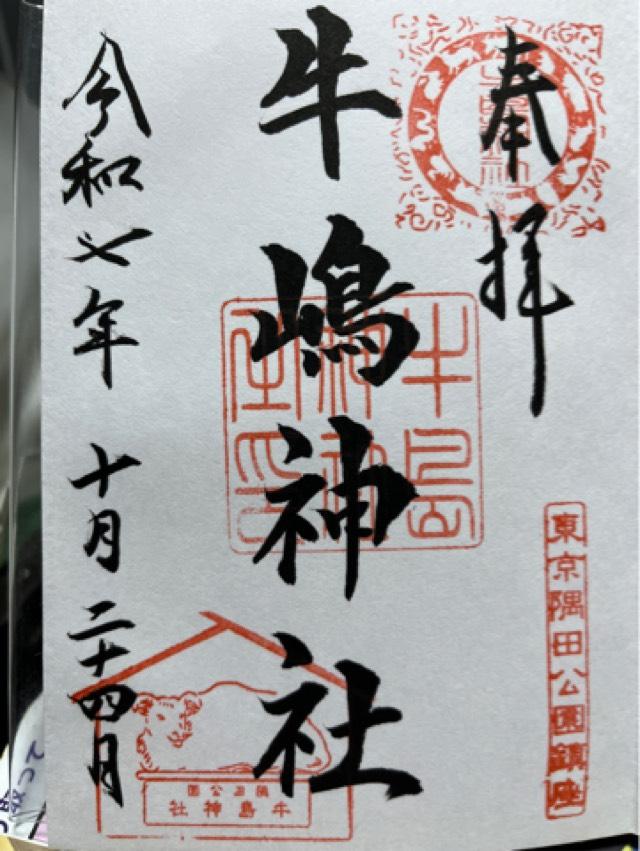 奉拝
東京隅田公園鎮座
牛嶋神社
牛島
神社
之印
令和七年 十月 二十四日
隅田公園
牛島神社